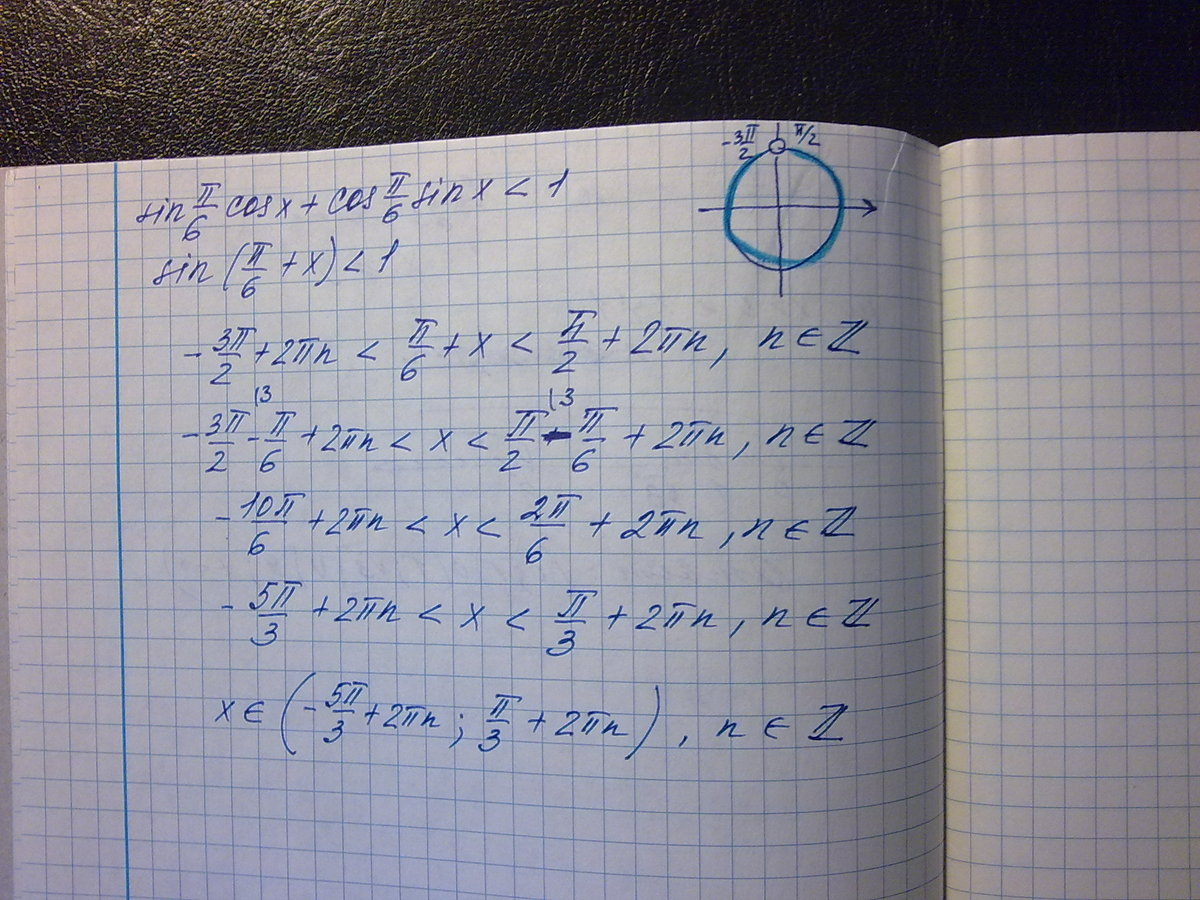 -3π/2 π/2
sin π/6 cos x + cos π/6 sin x < 1
sin (π/6 + x) < 1
-3π/2 + 2πn < π/6 + x < π/2 + 2πn, n ∈ ℤ
-3π/2 - π/6 + 2πn < x < π/2 (3 - π/6 + 2πn, n ∈ ℤ
-10π/6 + 2πn < x < 2π/6 + 2πn, n ∈ ℤ
-5π/3 + 2πn < x < π/3 + 2πn, n ∈ ℤ
x ∈ (-5π/3 + 2πn ; π/3 + 2πn), n ∈ ℤ